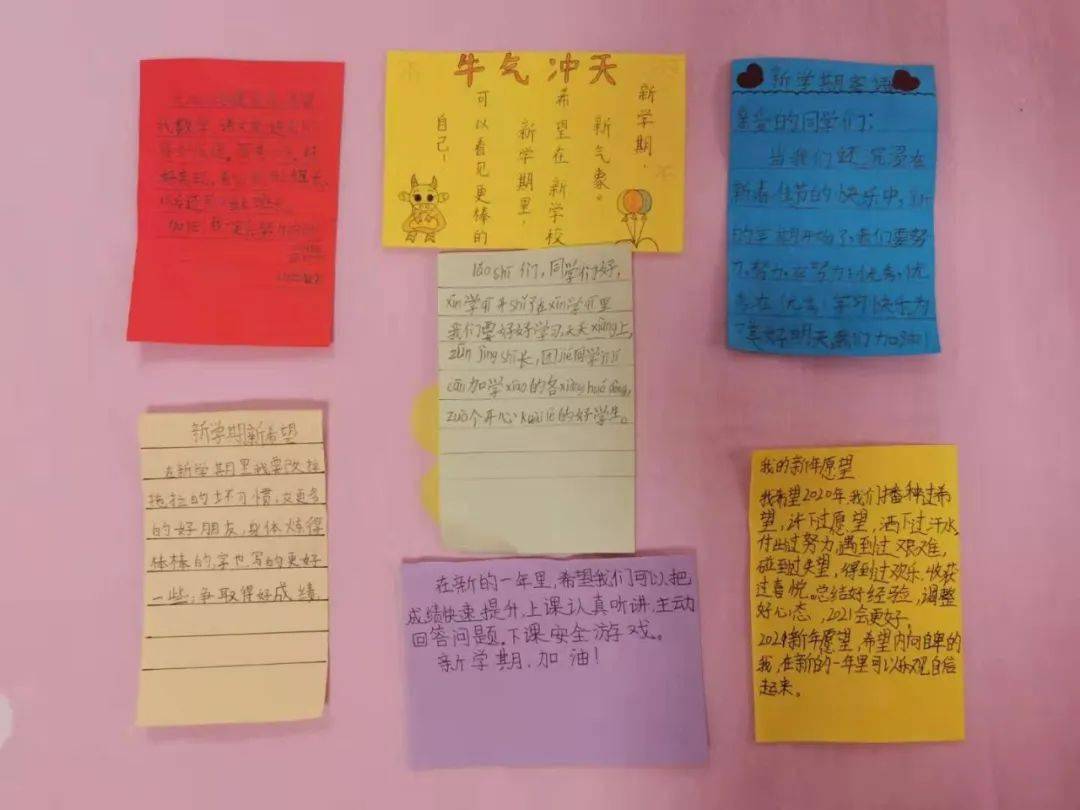 我数学 语文
加油
牛气冲天
新学期，
新气象。
希望在新学校
新学期里，
可以看见更棒的
自己！
新学期寄语
亲爱的同学们：
当我们还沉浸在
新春佳节的快乐中，新
的学期开始了，我们要努
力，努力，再努力；优秀，优
秀，在优秀！学习快乐为
了美好明天，我们加油！
lǎo shī 们，同学们好，
xīn学 开shǐ 在xīn学 里
我们要好好学习，天天xiàng上，
zūn jìng shī长，团jié同学，
cān加学xiào的各xiàng huó dòng，
zuò个开心kuài lè的好学生。
新学期新希望
在新学期里我要改掉
拖拉的坏习惯，交更多
的好朋友，身体炼得
棒棒的，字也写的更好
一些，争取得好成绩
在新的一年里，希望我们可以把
成绩快速提升，上课认真听讲，主动
回答问题，下课安全游戏。
新学期，加油！
我的新年愿望
我希望2020年，我们播种过希
望，许下过愿望，洒下过汗水，
付出过努力，遇到过艰难，
碰到过失望，得到过欢乐，收获
过喜悦。总结好经验，调整
好心态，2021会更好。
2021新年愿望，希望内向自卑的
我，在新的一年里可以乐观自信
起来。